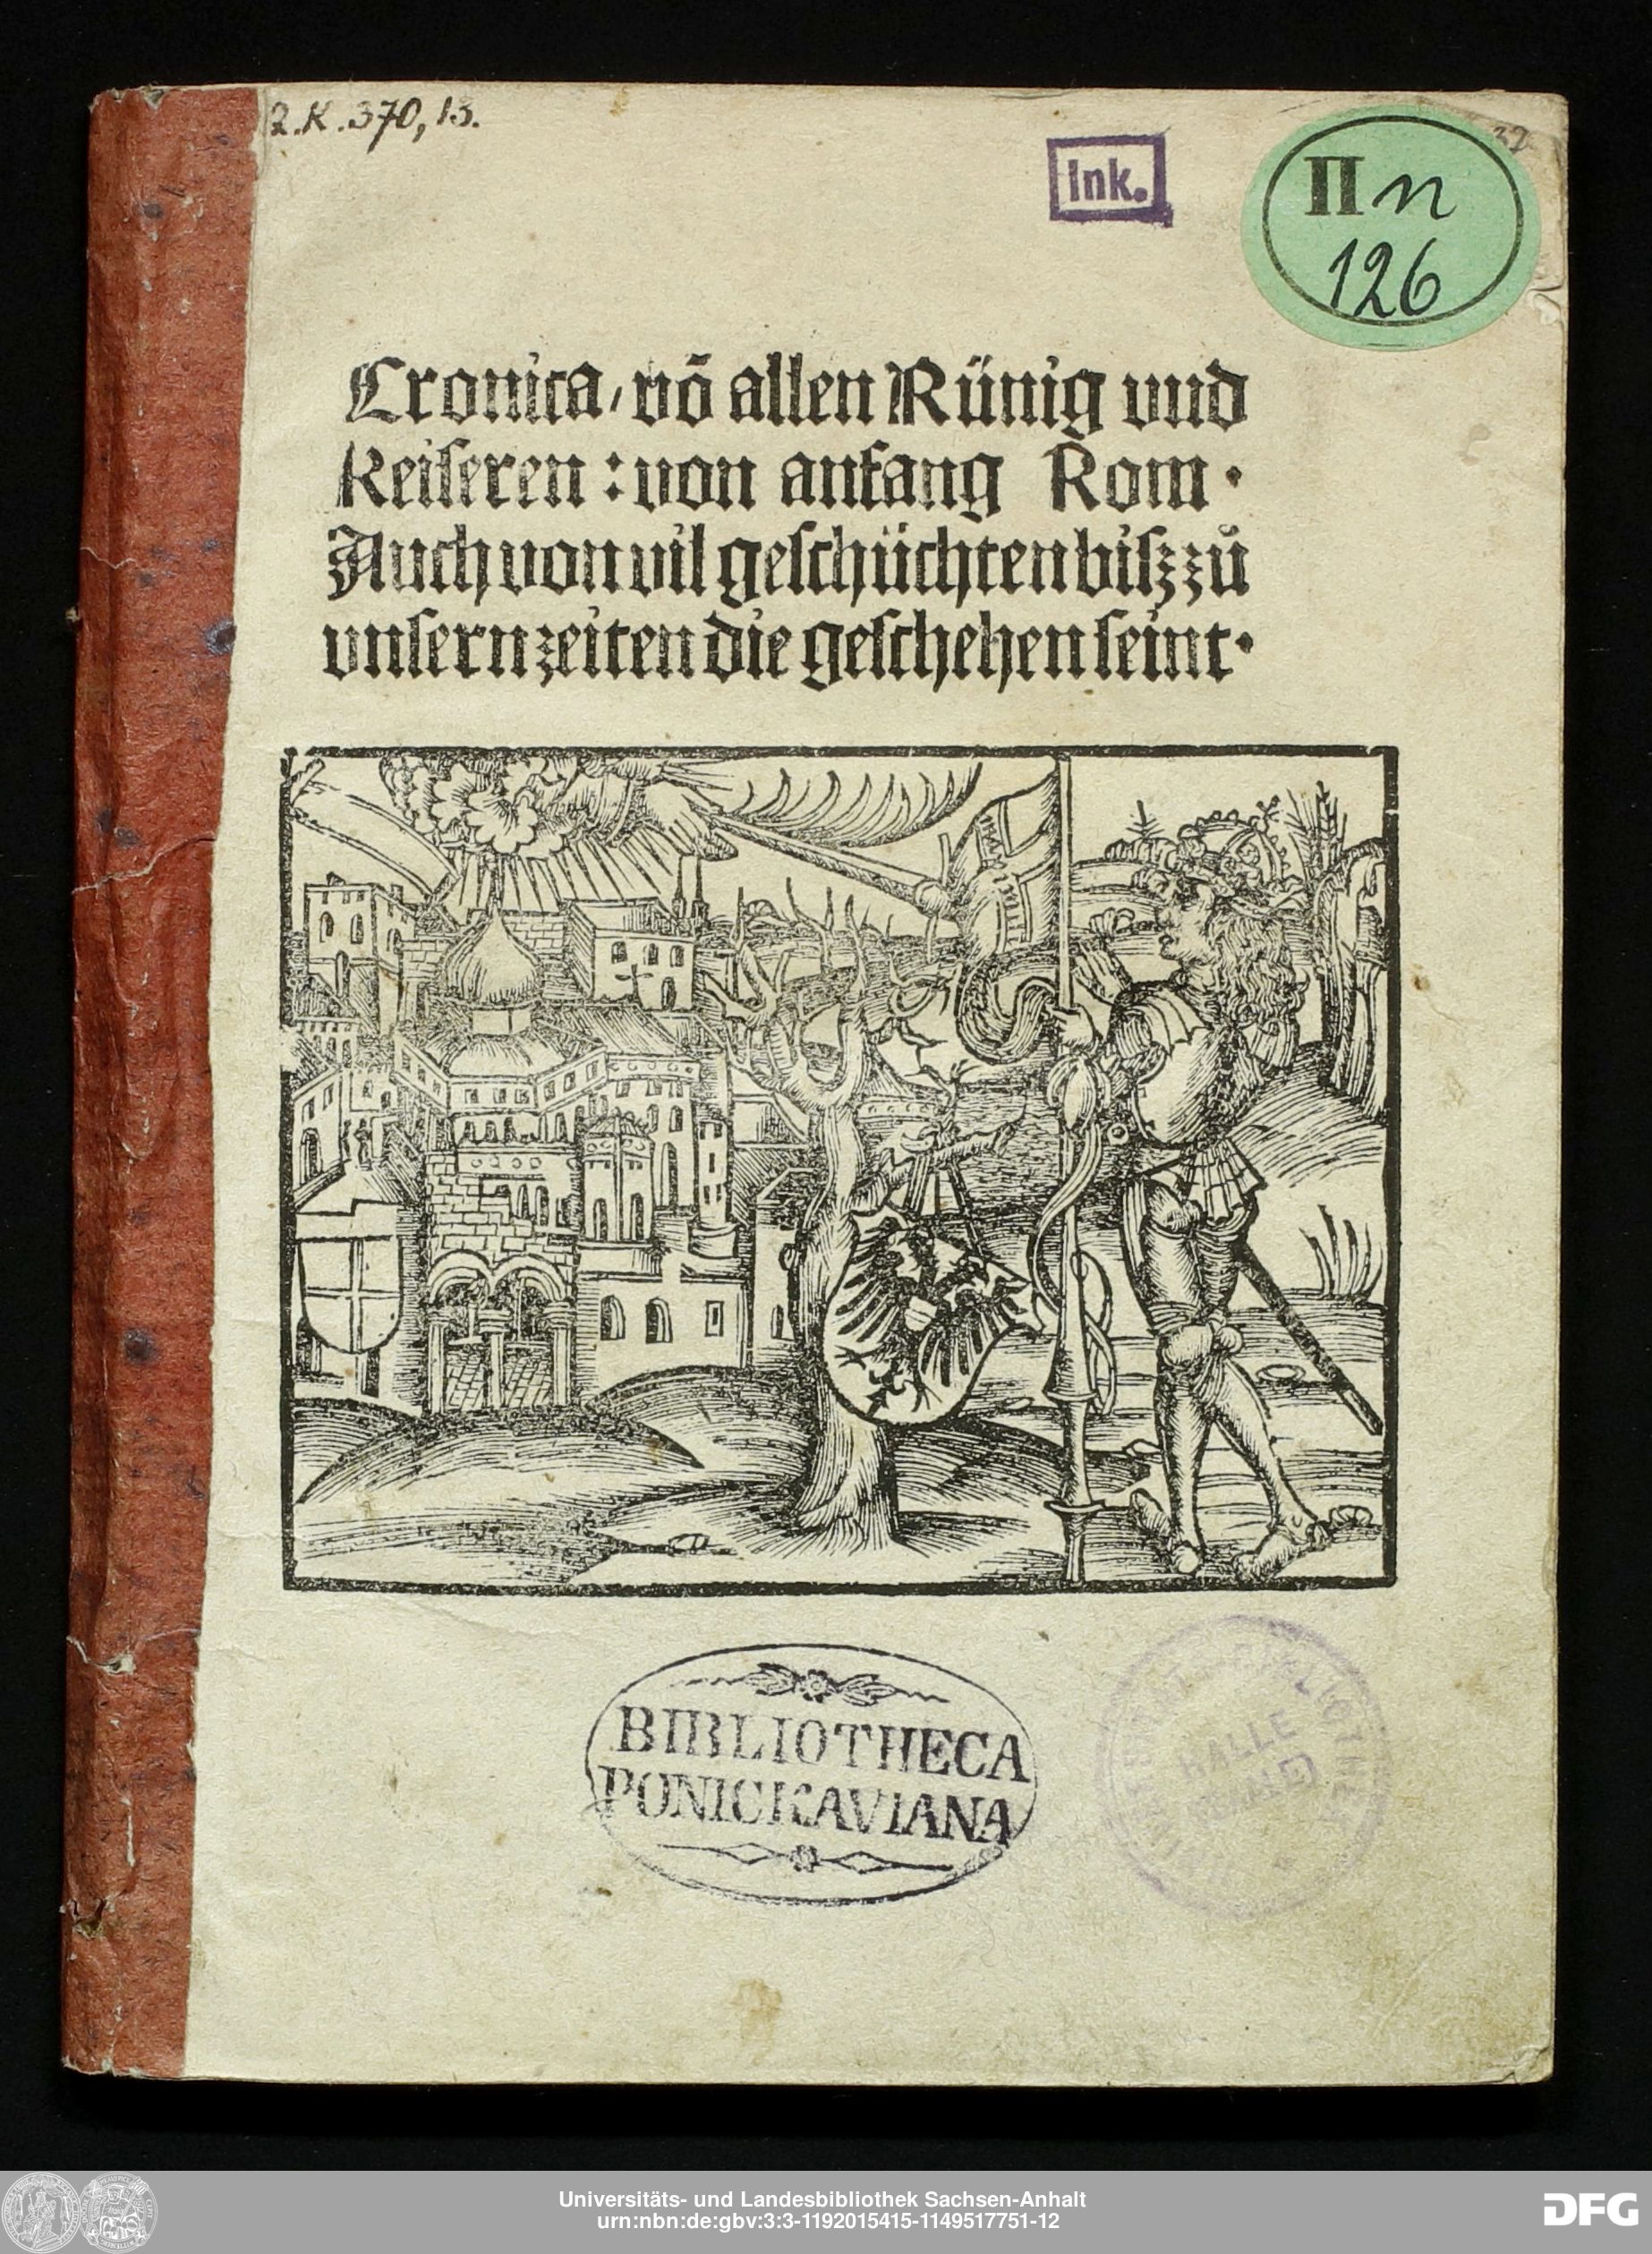 2.K.370,13.
Ink.
37
II n
126
Cronica, vō allen Künig vnd
Keiseren : von anfang Rom ·
Auch von vil geschüchten bisz zů
vnsern zeiten die geschehen seint ·
BIBLIOTHECA
PONICKAVIANA
HALLE
Universitäts- und Landesbibliothek Sachsen-Anhalt
urn:nbn:de:gbv:3:3-1192015415-1149517751-12
DFG